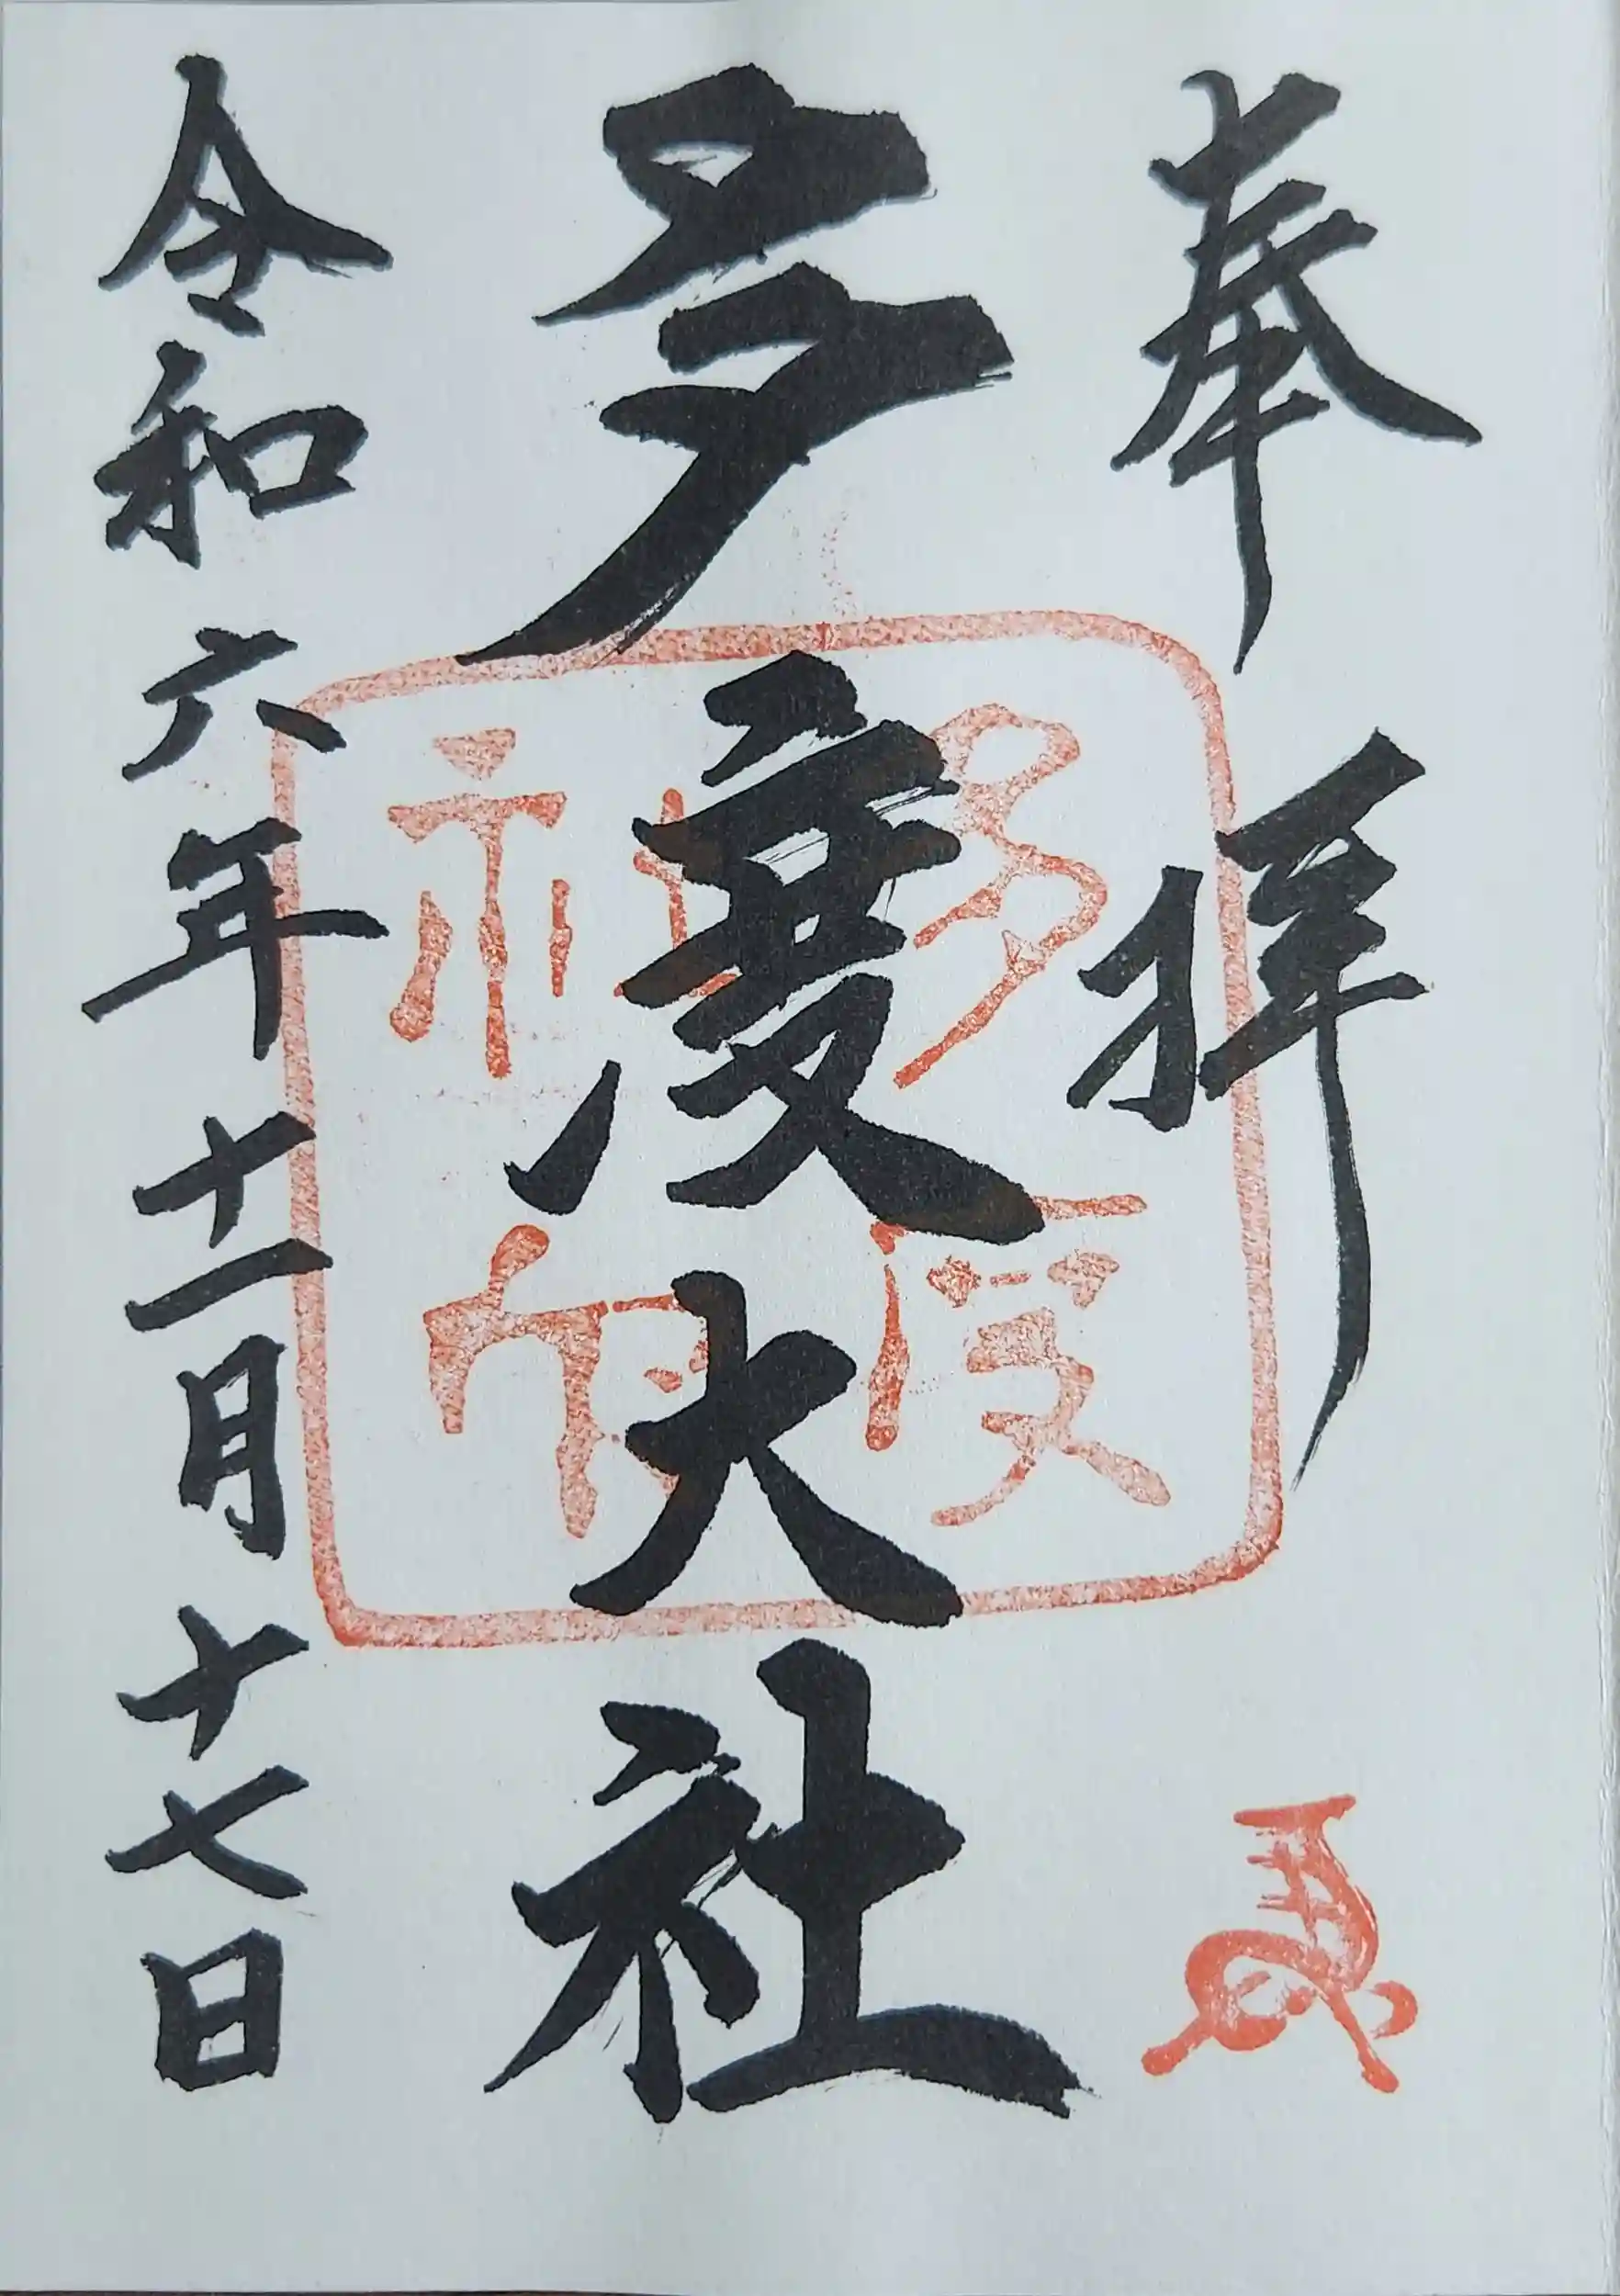 奉拝
多度大社
令和六年十一月十七日
多度
社印